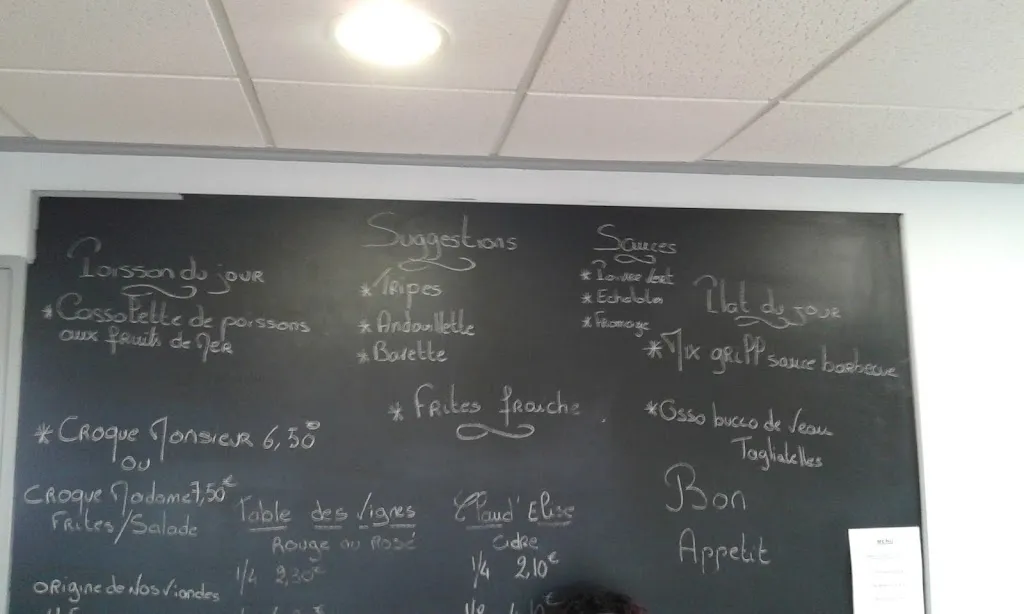 Poisson du jour
* Cassolette de poissons
aux fruits de Mer
Suggestions
* Tripes
* Andouillette
* Bavette
* Frites fraiche
Sauces
* Poivre Vert
* Echalotes
* Fromage
Plat du jour
* Mix grill sauce barbecue
* Osso bucco de Veau
Tagliatelles
* Croque Monsieur 6,50
ou
Croque Madame 7,50€
Frites/Salade
Table des Vignes
Rouge ou Rosé
1/4 2,30€
Claud' Elise
Cidre
1/4 2,10€
Bon
Appetit
Origine de Nos Viandes
MENU